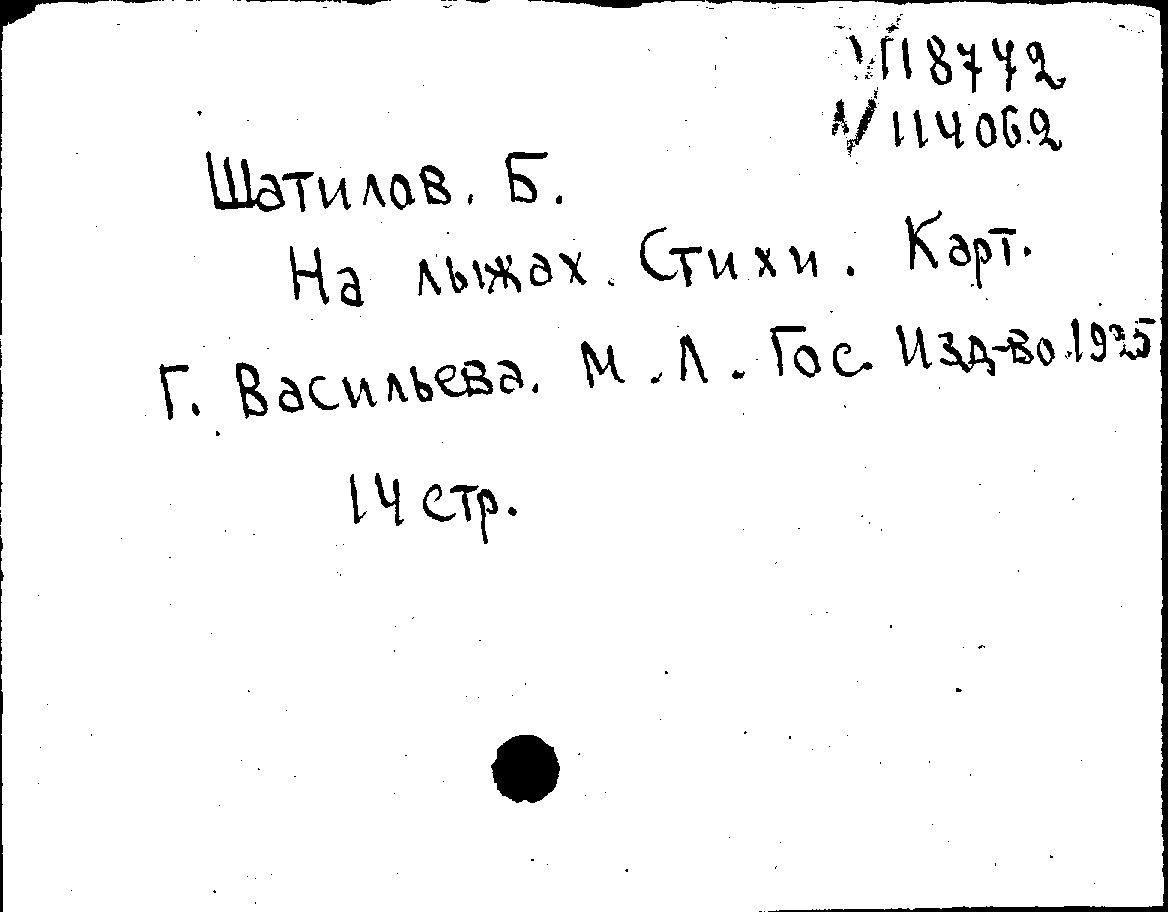 118742
114062
Шатилов. Б.
На лыжах. Стихи. Карт.
Г. Васильева. М. Л. Гос. Изд-во. 1925
14 стр.